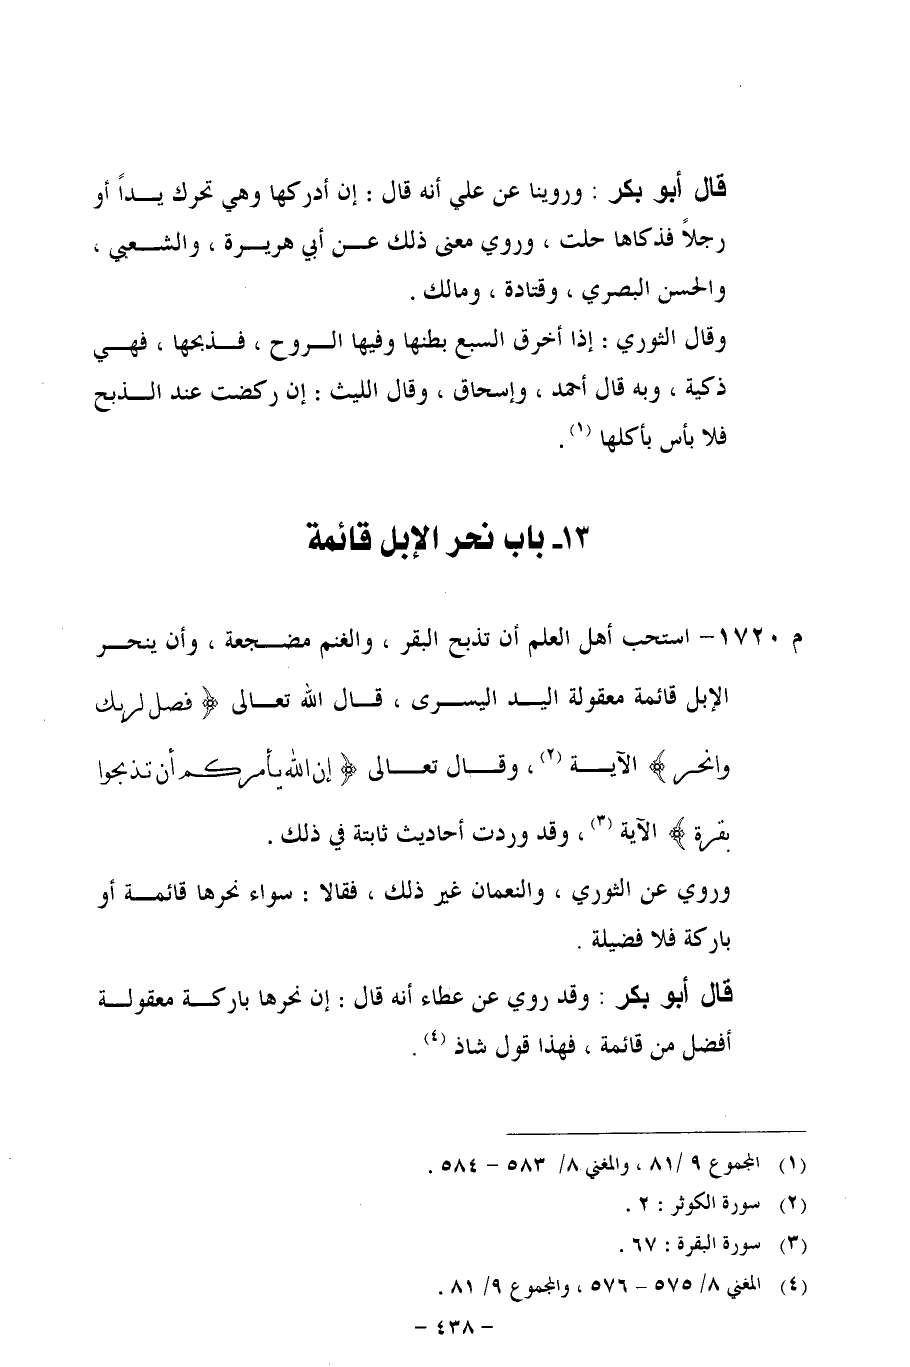 قال أبو بكر : وروينا عن علي أنه قال : إن أدركها وهي تحرك يـــداً أو
رجلاً فذكاها حلت ، وروي معنى ذلك عــن أبي هريــرة ، والشــعبي ،
والحسن البصري ، وقتادة ، ومالك .
وقال الثوري : إذا أخرق السبع بطنها وفيها الــروح ، فــذبحها ، فهــي
ذكية ، وبه قال أحمد ، وإسحاق ، وقال الليث : إن ركضت عند الــذبح
فلا بأس بأكلها (١) .
١٣ـ باب نحر الإبل قائمة
م ١٧٢٠– استحب أهل العلم أن تذبح البقر ، والغنم مضــجعة ، وأن ينحــر
الإبل قائمة معقولة اليــد اليســرى ، قــال الله تعــالى ﴿ فصل لربك
وانحر ﴾ الآيــة (٢) ، وقــال تعــالى ﴿ إن الله يأمركم أن تذبحوا
بقرة ﴾ الآية (٣) ، وقد وردت أحاديث ثابتة في ذلك .
وروي عن الثوري ، والنعمان غير ذلك ، فقالا : سواء نحرها قائمــة أو
باركة فلا فضيلة .
قال أبو بكر : وقد روي عن عطاء أنه قال : إن نحرها باركــة معقولــة
أفضل من قائمة ، فهذا قول شاذ (٤) .
(١) المجموع ٩ /٨١ ، والمغني ٨/ ٥٨٣ – ٥٨٤ .
(٢) سورة الكوثر : ٢ .
(٣) سورة البقرة : ٦٧ .
(٤) المغني ٨/ ٥٧٥ – ٥٧٦ ، والمجموع ٩/ ٨١ .
– ٤٣٨ –